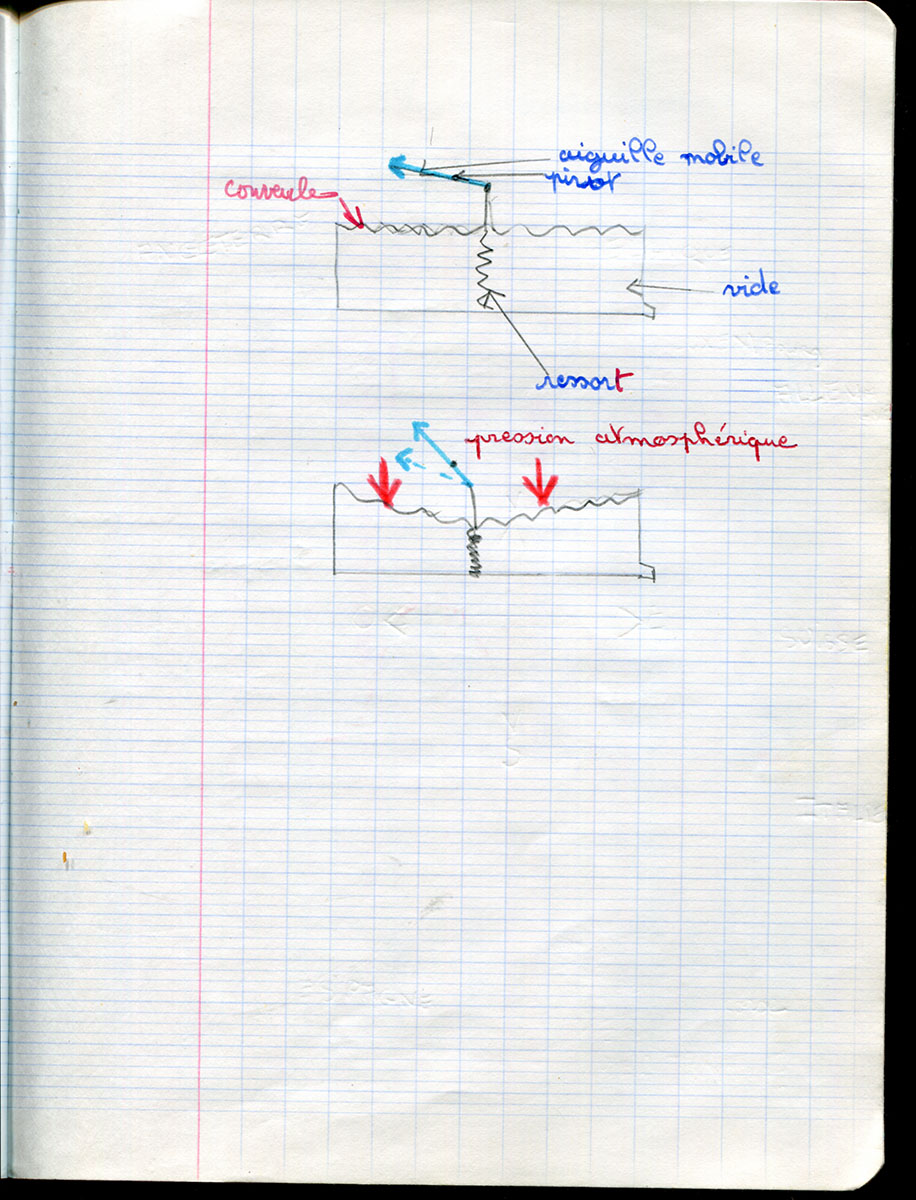 aiguille mobile
pivot
couvercle
vide
ressort
pression atmosphérique